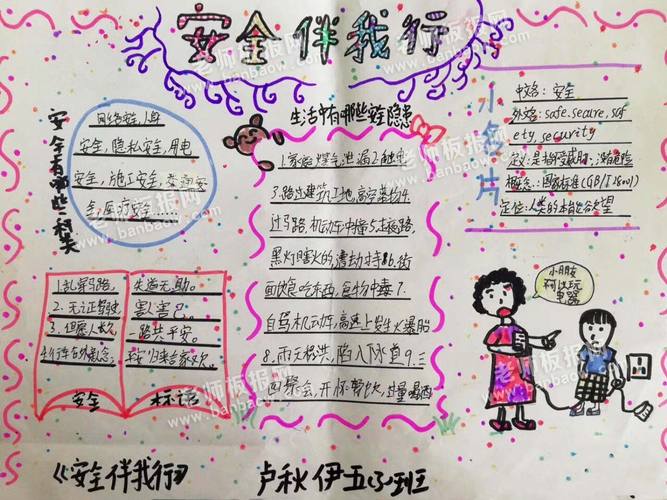 安全伴我行
安全有哪些种类
网络安全,人身
安全,隐私安全,用电
安全,施工安全,交通安
全,医疗安全......
生活中有哪些安全隐患
1.家庭煤气泄漏2.触电
3.路过建筑工地,高空坠物4.
过马路,机动车冲撞5.走夜路,
黑灯瞎火的,遭劫持6.街
面饮食吃东西,食物中毒7.
自驾机动车,高速上发生火爆胎
8.雨天移洗,陷入下水道9.三
四聚会,开怀
小名片
中文名:安全
外文名:safe.secure,saf
ety,security
国家标准(GB/T28001)
定位:人类的本能欲望
1.乱穿马路,
失道无助。
2.无证驾驶
害人害己。
3.
一路共平安。
4.行车
安全
标语
小朋友
阿以玩
电器
《安全伴我行》
卢秋伊五(3)班
老师板报网
www.banbaow.com